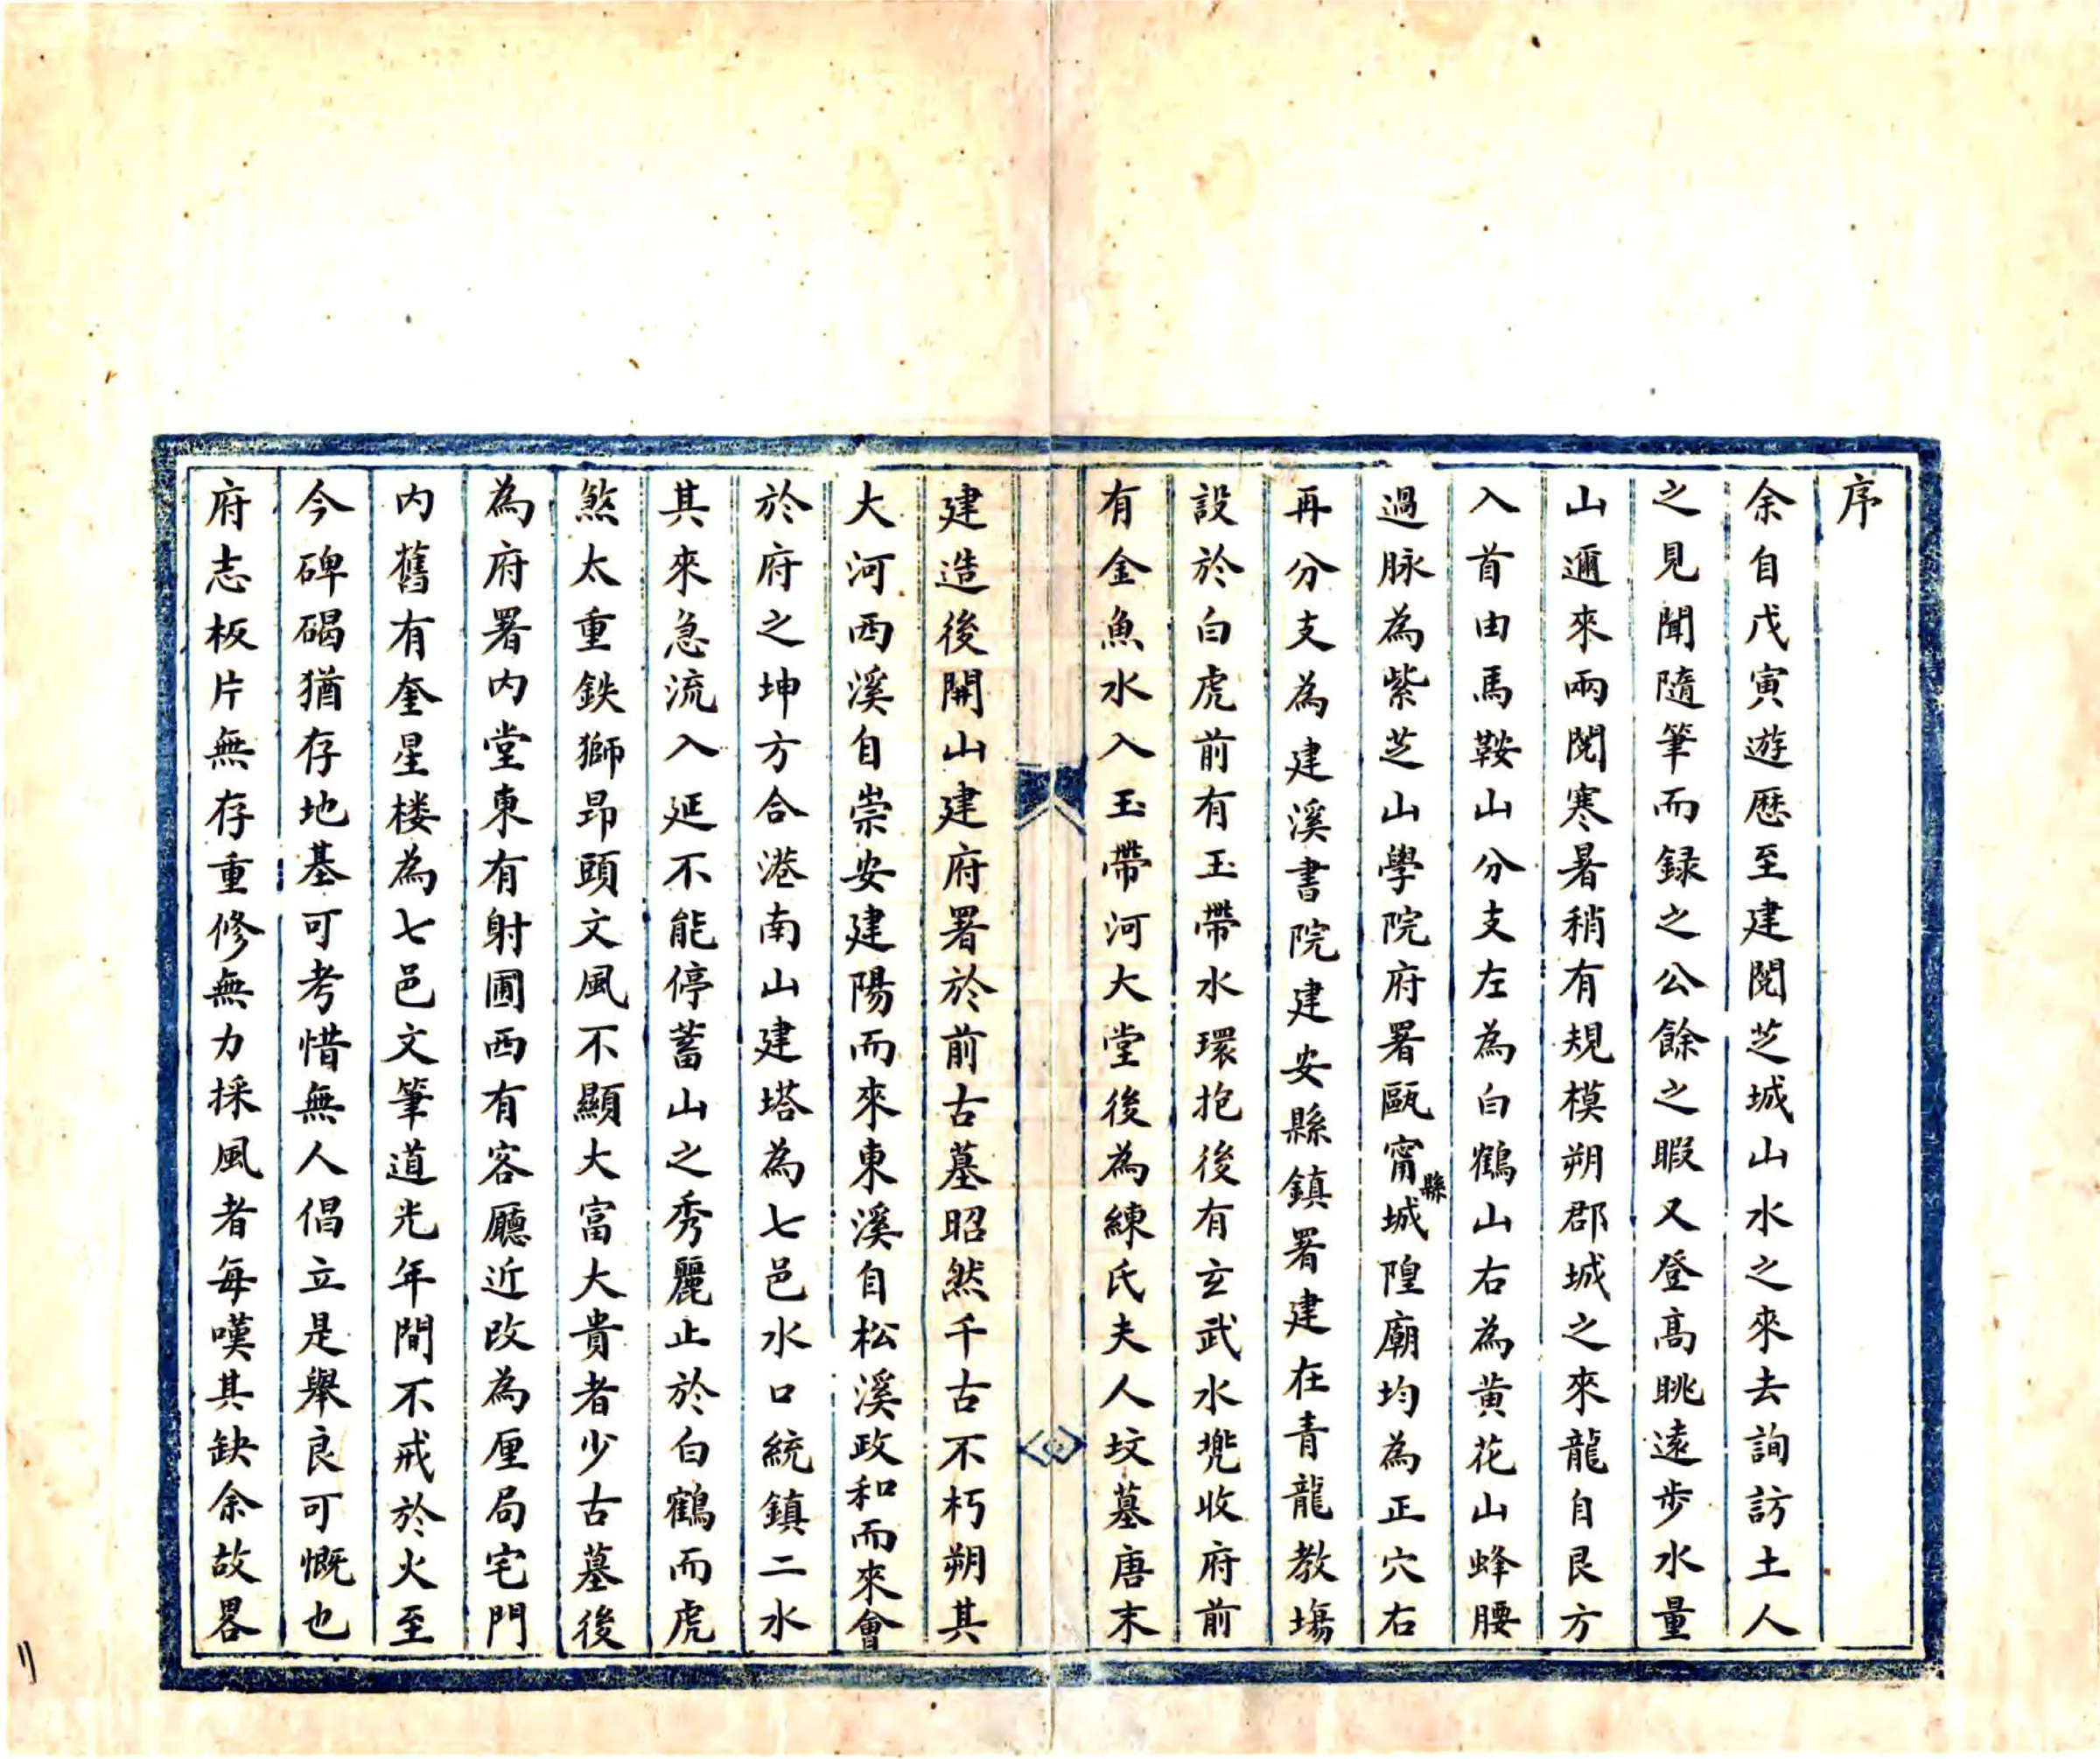 序
余自戊寅遊歷至建閱芝城山水之來去詢訪土人
之見聞隨筆而録之公餘之暇又登髙眺遠步水量
山邇來兩閱寒暑稍有規模朔郡城之來龍自艮方
入首由馬鞍山分支左為白鶴山右為黄花山蜂腰
過脉為紫芝山學院府署甌甯縣城隍廟均為正穴右
再分支為建溪書院建安縣鎮署建在青龍教塲
設於白虎前有玉帶水環抱後有玄武水兠收府前
有金魚水入玉帶河大堂後為練氏夫人坟墓唐末
建造後開山建府署於前古墓昭然千古不朽朔其
大河西溪自崇安建陽而來東溪自松溪政和而來會
於府之坤方合港南山建塔為七邑水口統鎮二水
其來急流入延不能停蓄山之秀麗止於白鶴而虎
煞太重鉄獅昻頭文風不顯大富大貴者少古墓後
為府署内堂東有射圃西有客廳近改為厘局宅門
内舊有奎星楼為七邑文筆道光年間不戒於火至
今碑碣猶存地基可考惜無人倡立是舉良可慨也
府志板片無存重修無力採風者每嘆其缺余故畧